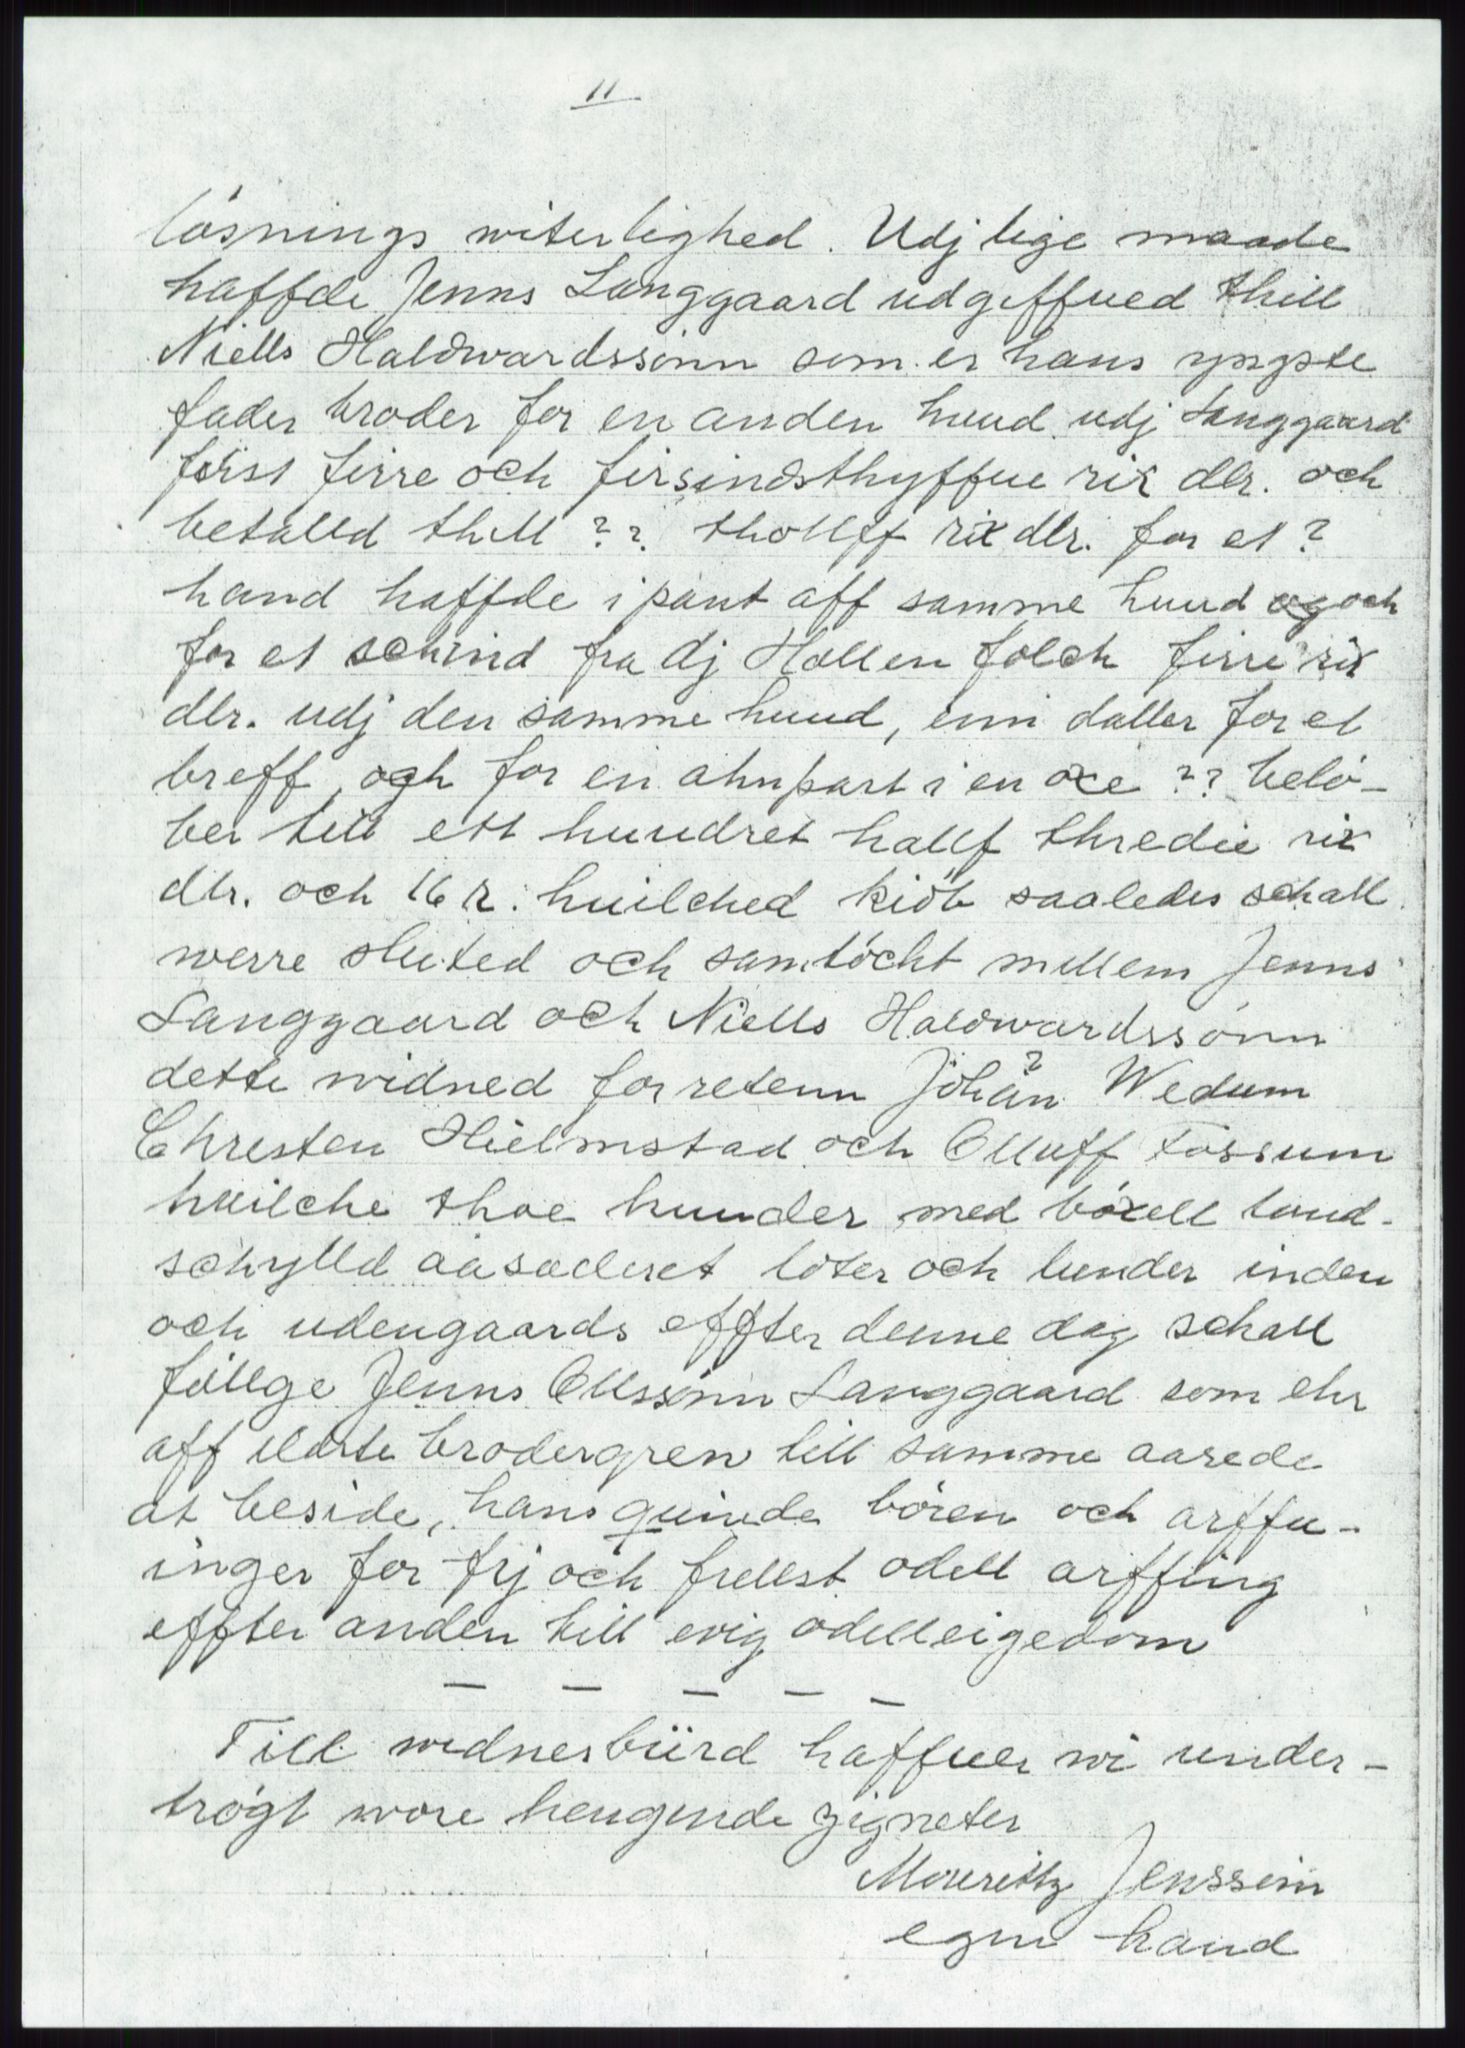 11
lösnings witerlighed. Udj lige maade
haffde Jenns Langgaard udgiffued thill
Niells Haldwardssönn som er hans yngste
fader broder for en anden huud udj Langgaard
först firre och firsindsthyffue rix dlr. och
betalld thill ?? thollff rix dlr. for et ?
hand haffde i pant aff samme huud og och
for et schind fra dj Hollen folch firre rix
dlr. udj den samme huud, enn daller for et
breff, och for en ahnpart i en oxe ?? belö-
ber till ett hundret hallf thredie rix
dlr. och 16 s. huilched kiöb saaledes schall
werre sluted och samtöcht mellem Jenns
Langgaard och Niells Haldwardssönn
dette widned for retenn Jöhan ? Wedum
Christen Hielmstad och Olluff Fossum
huilche thoe huuder med böxell land-
schylld aasæderet loter och lunder inden
och udengaards effter denne dag schall
föllge Jenns Ollssönn Langgaard som ehr
aff eldste brodergren till samme aarede
at beside, hans quinde bören och arffu-
inger for frj och frellst odell arffing
effter anden till evig odelleigedom
— — — — —
Till widnesbürd haffuer wi under-
trögt wore hengende zigneter
Mouritz Jenssönn
egen hand